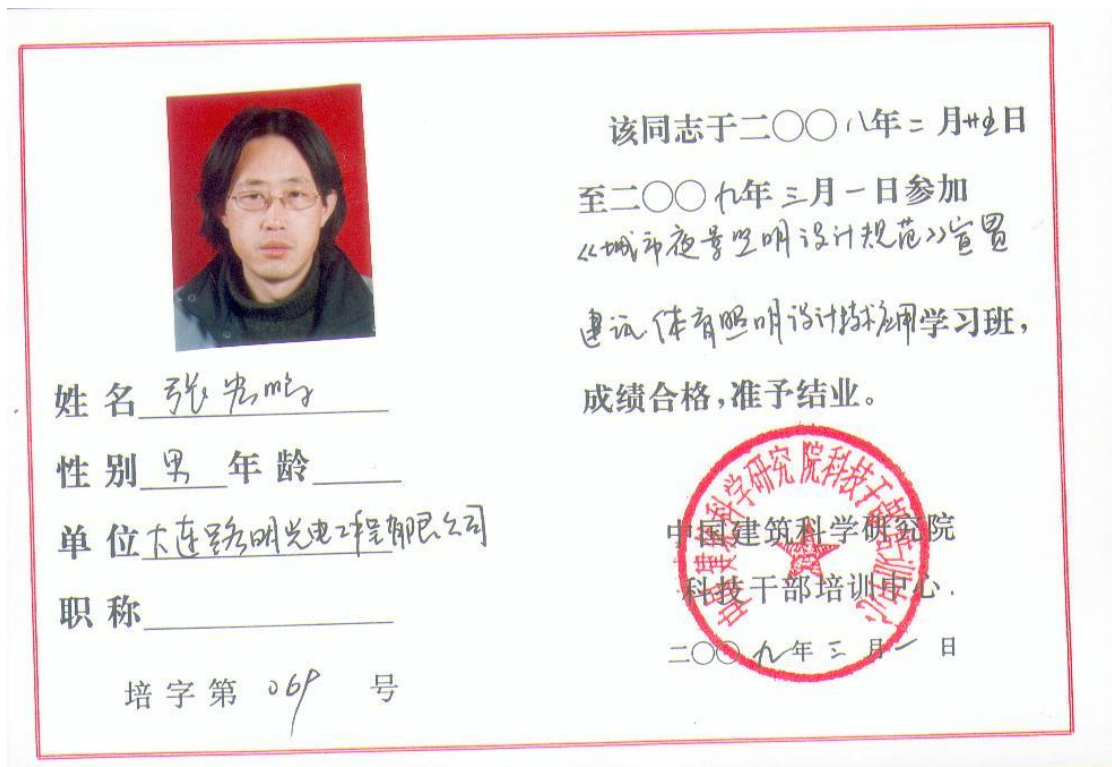 姓名 张宏鹏
性别 男 年龄
单位 大连路明光电工程有限公司
职称
培字第 069 号
该同志于二〇〇八年二月廿五日
至二〇〇九年三月一日参加
《城市夜景照明设计规范》宣贯
体育照明设计技术应用学习班,
成绩合格,准予结业。
中国建筑科学研究院
科技干部培训中心.
二〇〇九年三月一日
中国建筑科学研究院科技干部培训中心